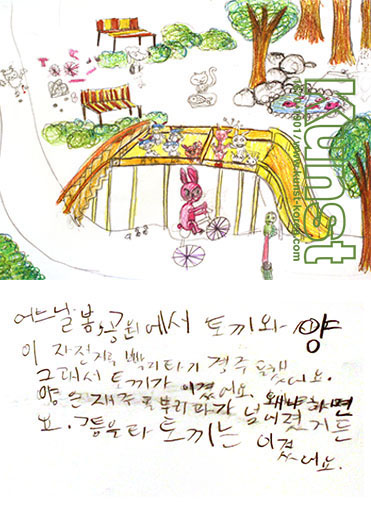 어느날 봄, 공원에서 토끼와 양
이 빨리타기 경주를 했
어요.
그래서 토끼가 이겼어요. 왜냐하면
양은 재주를 부리다가 넘어졌거든
요. 그틈을 타 토끼는 이겼
어요.
Kunst
www.kunst-korea.com